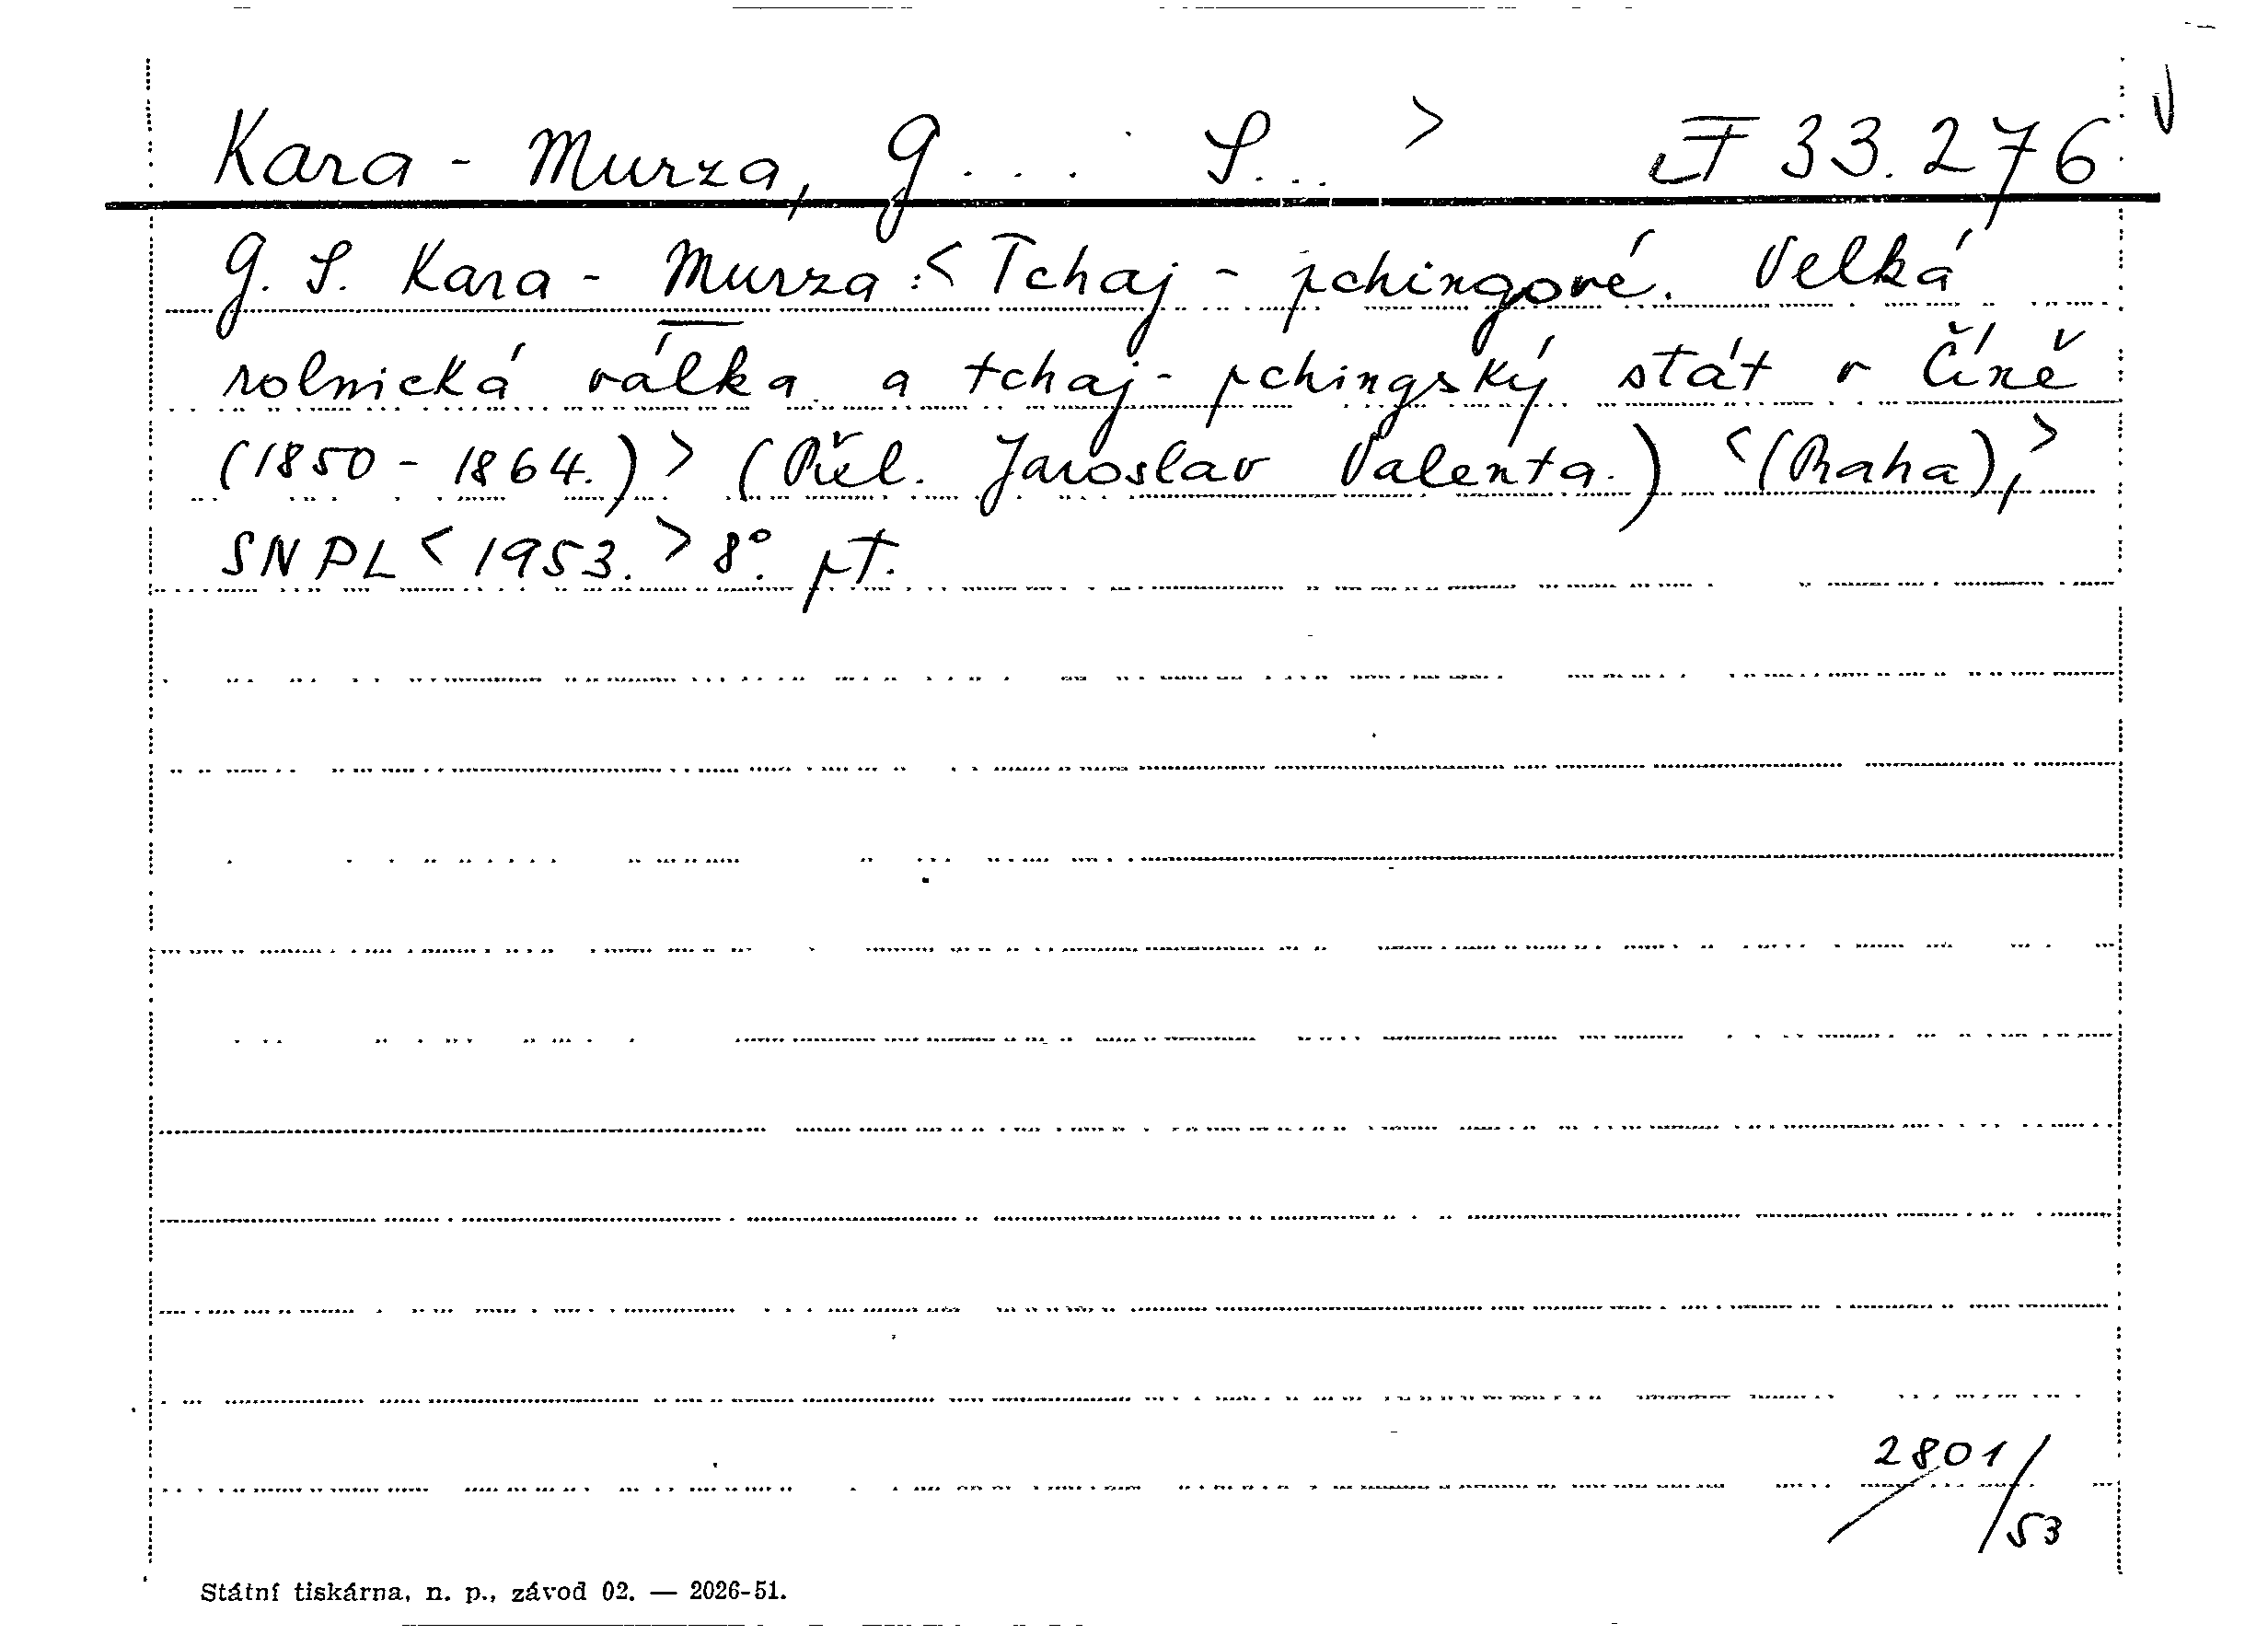 Kara - Murza, G... S... > F 33.276 v
G. S. Kara - Murza: < Tchaj - pchingové. Velká
rolnická válka a tchaj - pchingský stát v Číně
(1850 - 1864.) > (Přel. Jaroslav Valenta.) < (Praha), >
SNPL < 1953. > 8°. pt.
2801/
53
Státní tiskárna, n. p., závod 02. — 2026-51.